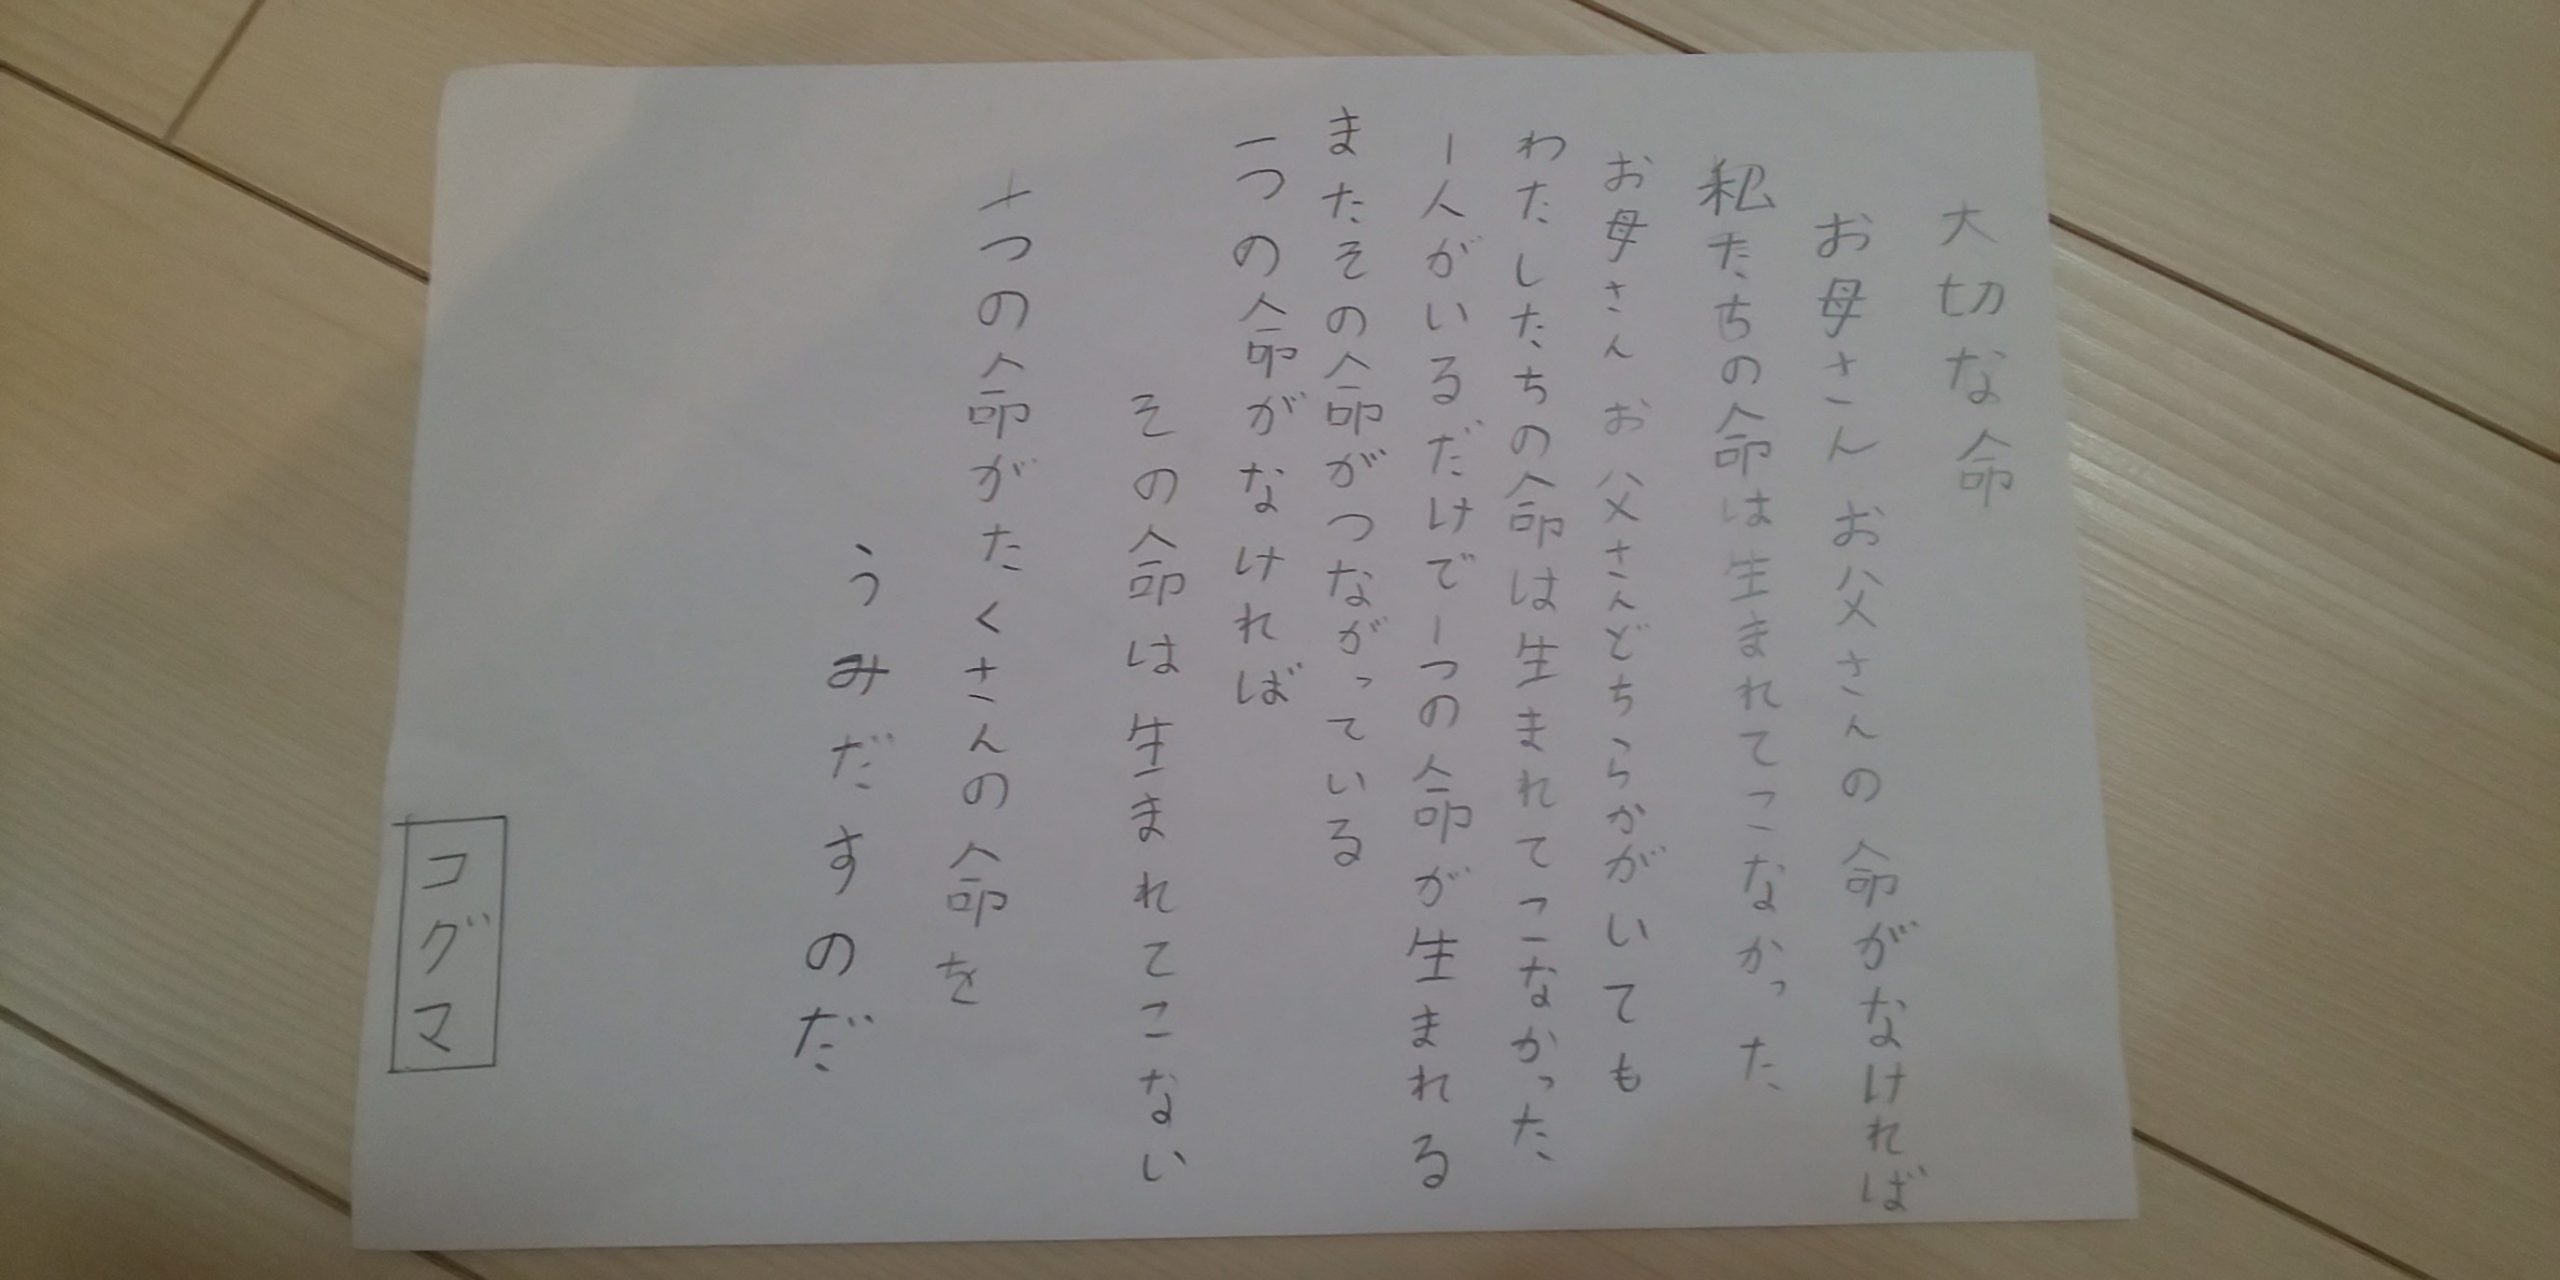 大切な命
お母さんお父さんの命がなければ
私たちの命は生まれてこなかった
お母さんお父さんどちらかがいても
わたしたちの命は生まれてこなかった
一人がいるだけで一つの命が生まれる
またその命がつながっている
一つの命がなければ
その命は生まれてこない
一つの命がたくさんの命を
うみだすのだ
コグマ